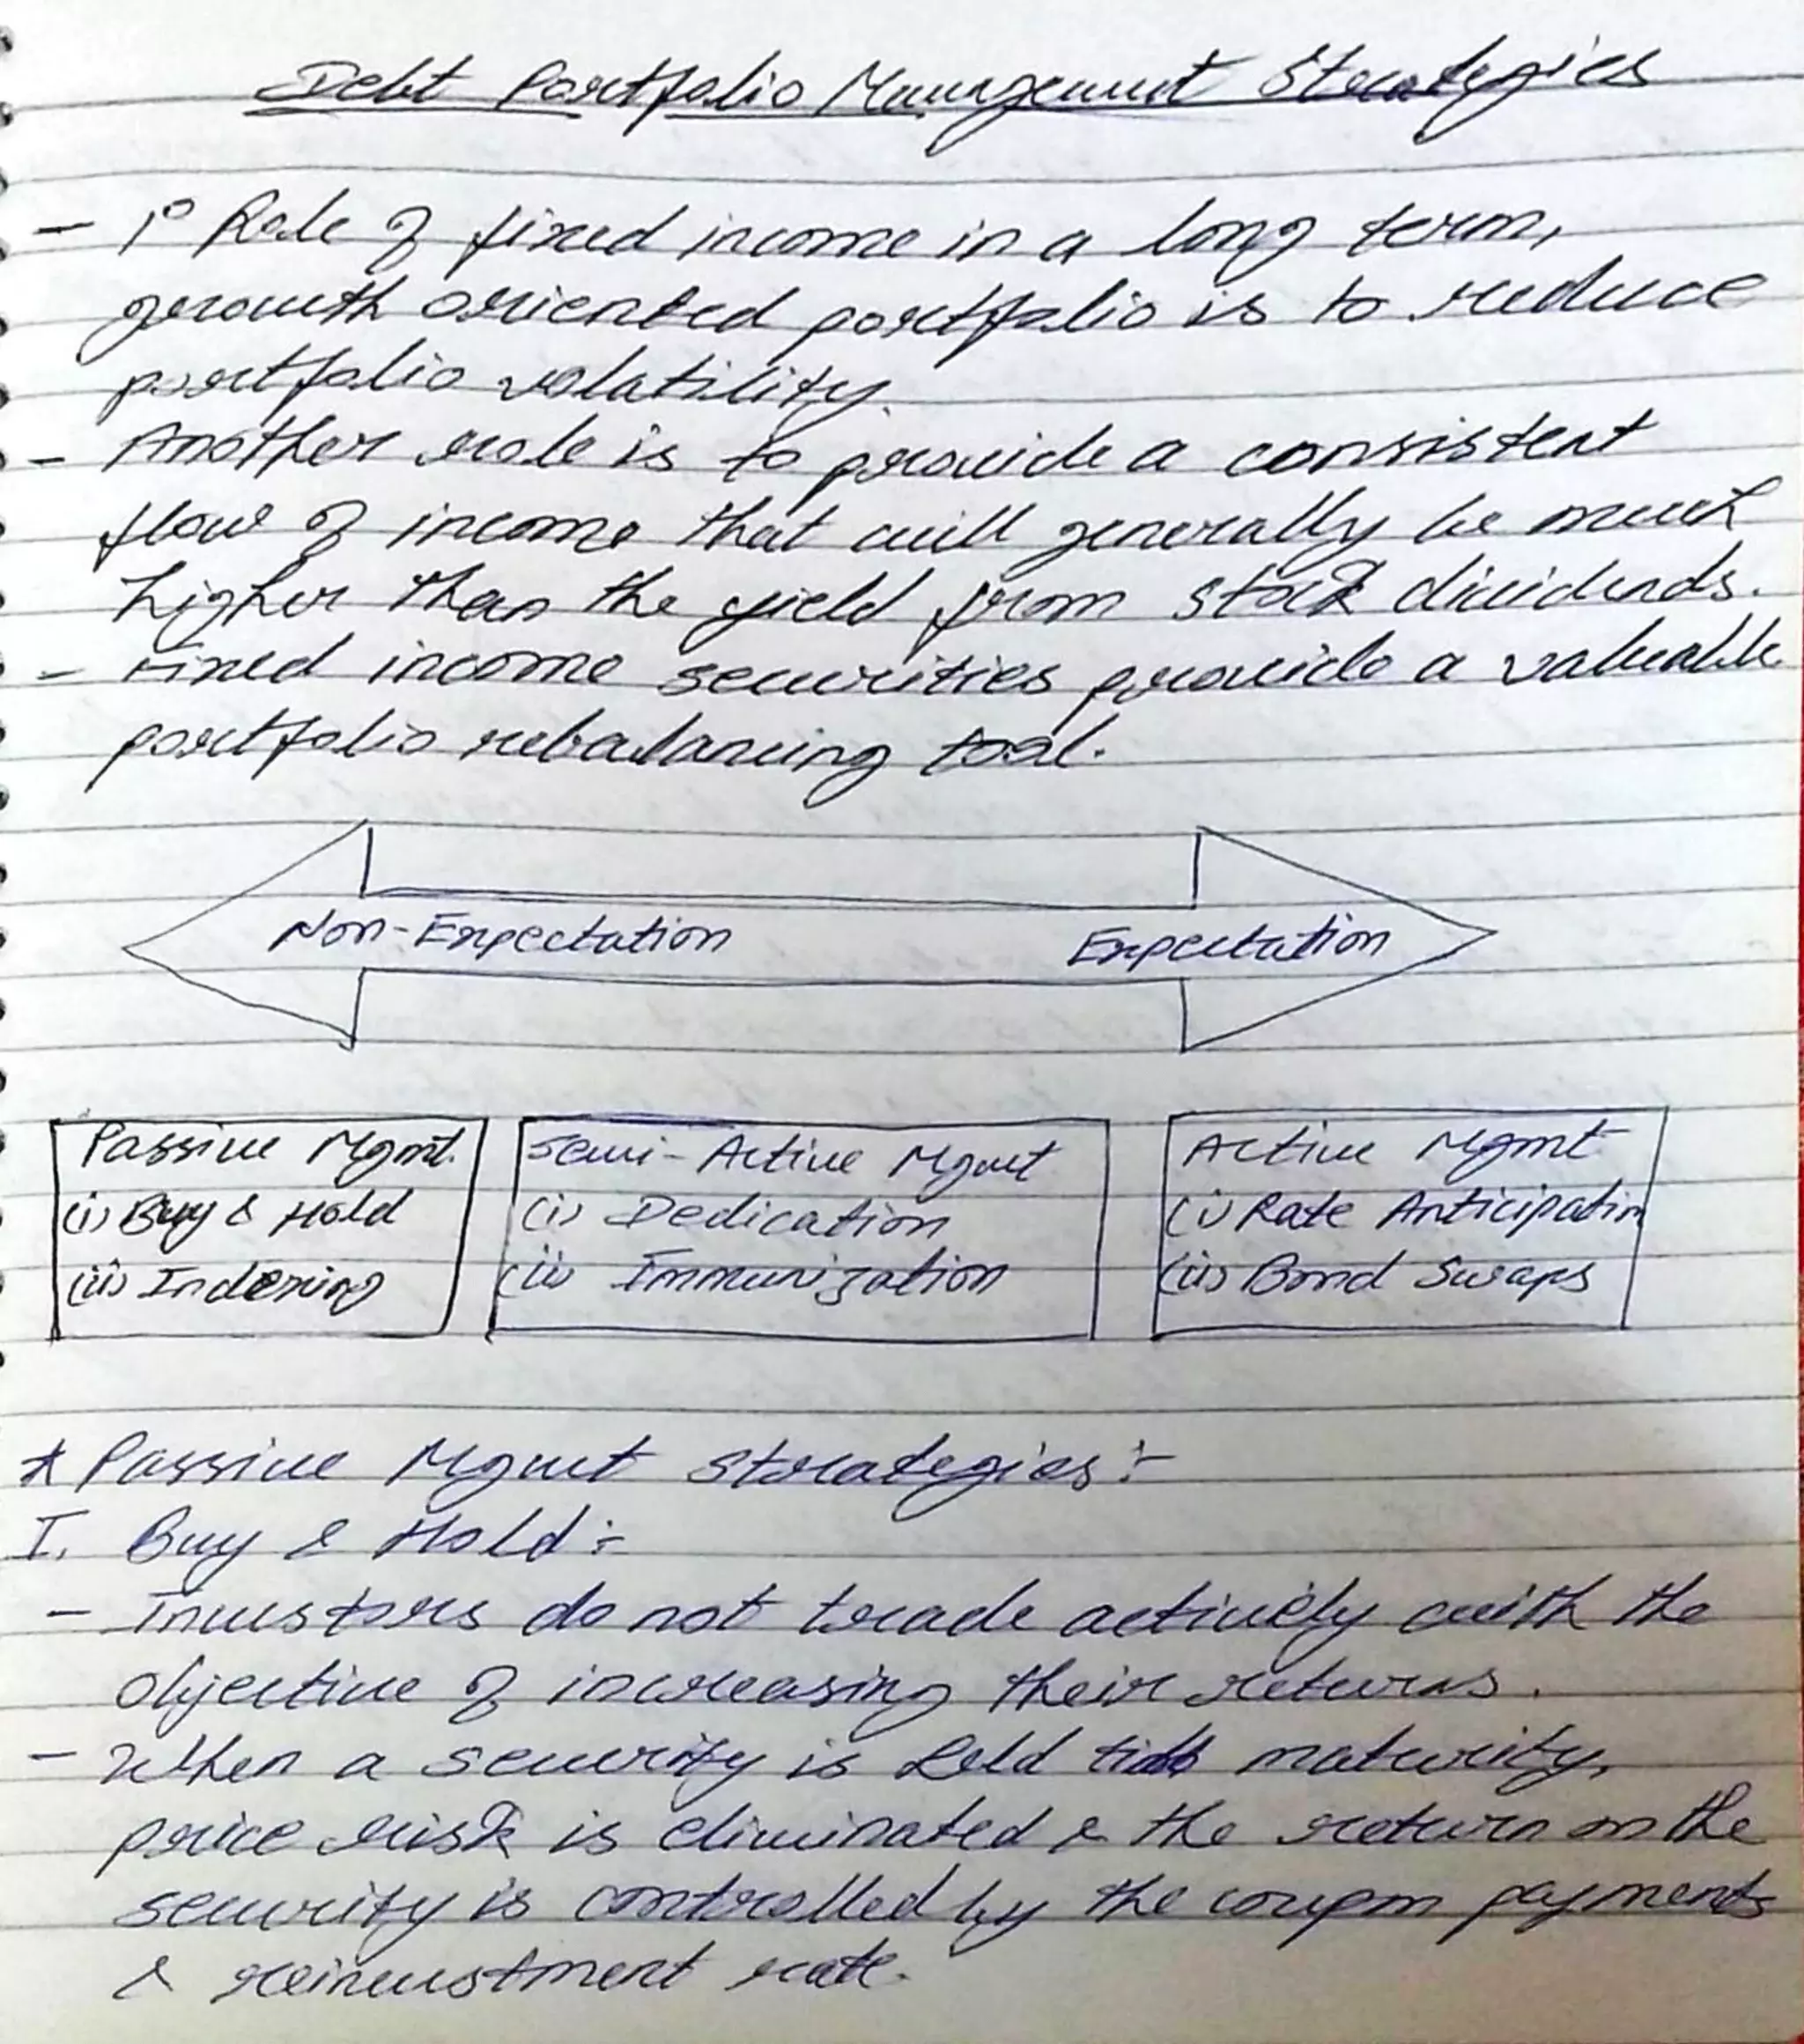 Debt Portfolio Management Strategies
- 1° Role of fixed income in a long term,
growth oriented portfolio is to reduce
portfolio volatility.
- Another role is to provide a consistent
flow of income that will generally be much
higher than the yield from stock dividends.
- Fixed income securities provide a valuable
portfolio rebalancing tool.
Non-Expectation Expectation
Passive Mgmt.
(i) Buy & Hold
(ii) Indexing
Semi-Active Mgmt
(i) Dedication
(ii) Immunization
Active Mgmt
(i) Rate Anticipation
(ii) Bond Swaps
* Passive Mgmt Strategies:-
I. Buy & Hold:-
- Investors do not trade actively with the
objective of increasing their returns.
- When a security is held till maturity,
price risk is eliminated & the return on the
security is controlled by the coupon payments
& reinvestment rate.